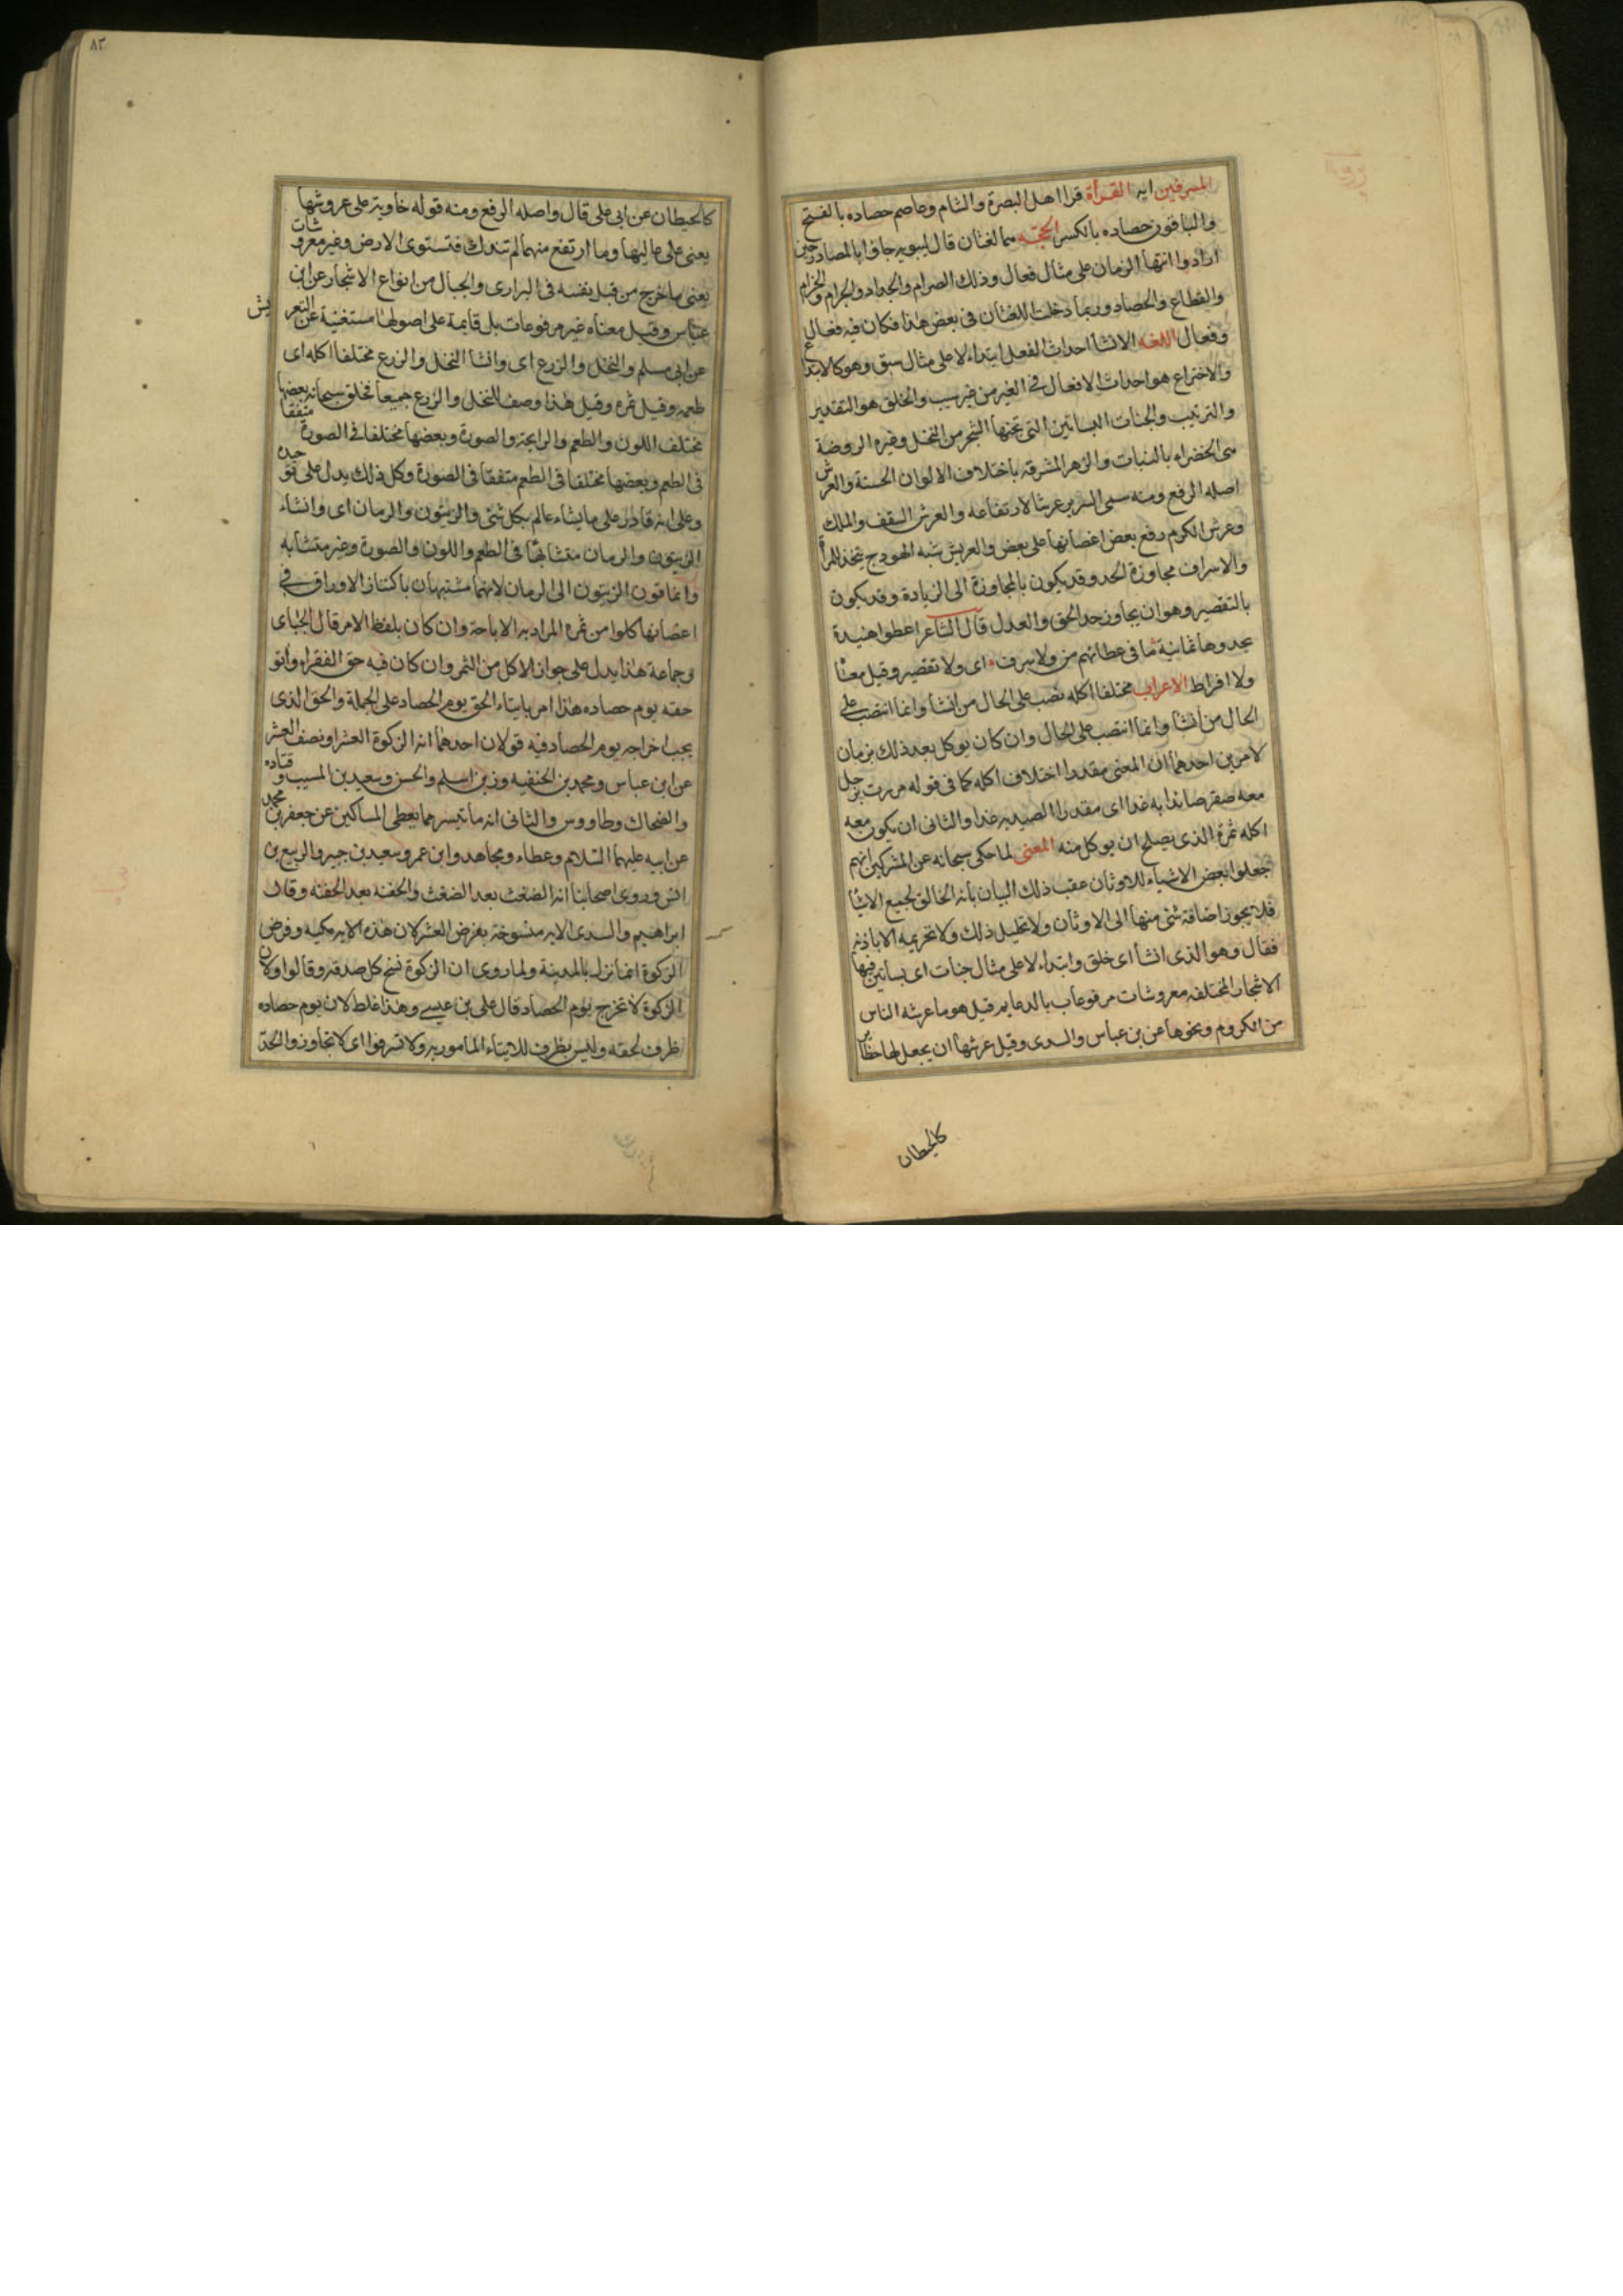 المسرفين ايه القرأة قرا اهل البصرة والشام وعاصم حصاده بالفتح
والباقون حصاده بالكسر الحجه هما لغتان قال سيبويه جاؤا بالمصادر حين
ارادوا انتهأ الزمان على مثال فعال وذلك الصرام والجداد والجرام والجزام
والقطاع والحصاد وربما دخلت اللغتان في بعض هذا فكان فيه فعال
وفعال اللغه الانشأ احداث الفعل ابتداء لا على مثال سبق وهو كالابتداع
والاختراع هو احداث الافعال في الغير من غير سبب والخلق هو التقدير
والترتيب والجنات البساتين التي تجنها الشجر من النخل وغيره الروضة
هى الخضراء بالنبات والزهر المشرقه باختلاف الالوان الحسنة والعرش
اصله الرفع ومنه سمى السرير عرشا لارتفاعه والعرش السقف والملك
وعرش الكروم رفع بعض اغصانها على بعض والعريش شبه الهودج يتخذ للمرأة
والاسراف مجاوزة الحد وقد يكون بالمجاوزة الى الزيادة وقد يكون
بالتقصير وهو ان يجاوز حد الحق والعدل قال الشاعر اعطوا هنيدة
يحدوها ثمانية ما في عطائهم من ولا سرف اى ولا تقصير وقيل معنا
ولا افراط الاعراب مختلفا اكله نصب على الحال من انشأ وانما انتصب على
الحال من أنشأ وانما انتصب على الحال وان كان يوكل بعد ذلك بزمان
لامرين احدهما ان المعنى مقدرا اختلاف اكله كما في قوله مررت برجل
معه صقر صائدا به غدا اى مقدرا الصيد به غدا والثانى ان يكون معه
اكله ثمرة الذى يصلح ان يوكل منه المعنى لما حكى سبحانه عن المشركين انهم
جعلوا بعض الاشياء للاوثان عقب ذلك البيان بأنه الخالق لجميع الاشيأ
فلا يجوز اضافة شئ منها الى الاوثان ولا تحليل ذلك ولا تحريمه الا باذنه
فقال وهو الذى انشأ اى خلق وابتداء لا على مثال جنات اى بساتين فيها
الاشجار المختلفه معروشات مرفوعات بالدعايم قيل هو ما عرشه الناس
من الكروم ونحوها عن بن عباس والسدى وقيل عرشها ان يجعل لها حظاير
كالحيطان
٨٢
كالحيطان عن ابى على قال واصله الرفع ومنه قوله خاوية على عروشها
يعنى على عاليها وما ارتفع منها لم تندك فتستوى الارض وغير معروشات
يعنى ما خرج من قبل نفسه في البرارى والجبال من انواع الاشجار عن ابن
عباس وقيل معناه غير مرفوعات بل قايمة على اصولها مستغنية عن التعريش
عن ابى مسلم والنخل والزرع اى وانشا النخل والزرع مختلفا اكله اى
طعمه وقيل ثمره وقيل هذا وصف للنخل والزرع جميعا فخلق سبحانه بعضها
مختلف اللون والطعم والرايحة والصورة وبعضها مختلفا في الصورة متفقا
فى الطعم وبعضها مختلفا في الطعم متفقا في الصورة وكل ذلك يدل على توحيده
وعلى انه قادر على ما يشاء عالم بكل شئ والزيتون والرمان اى وانشاء
الزيتون والرمان متشابها في الطعم واللون والصورة وغير متشابه
وانما قرن الزيتون الى الرمان لانهما مشتبهان باكتناز الاوراق في
اغصانها كلوا من ثمره المراد به الاباحة وان كان بلفظ الامر قال الجبائى
وجماعة هذا يدل على جواز الاكل من الثمر وان كان فيه حق الفقراء وأتوا
حقه يوم حصاده هذا امر بايتاء الحق يوم الحصاد على الجملة والحق الذى
يجب اخراجه يوم الحصاد فيه قولان احدهما انه الزكوة العشر او نصف العشر
عن ابن عباس ومحمد بن الحنفيه وزيد بن اسلم والحسن وسعيد بن المسيب وقتاده
والضحاك وطاووس والثانى انه ما تيسر مما يعطى المساكين عن جعفر بن محمد
عن ابيه عليهما السلام وعطاء ومجاهد وابن عمر وسعيد بن جبير والربيع بن
انس وروى اصحابنا انه الضغث بعد الضغث والحفنه بعد الحفنه وقال
ابراهيم والسدى الايه منسوخة بفرض العشر لان هذه الايه مكيه وفرض
الزكوة انما نزل بالمدينة ولما روى ان الزكوة نسخ كل صدقه وقالوا ولان
الزكوة لا تخرج يوم الحصاد قال على بن عيسى وهذا غلط لان يوم حصاده
ظرف لحقه وليس بظرف للايتاء المأمور به ولا تسرفوا اى لا تجاوزوا الحدّ